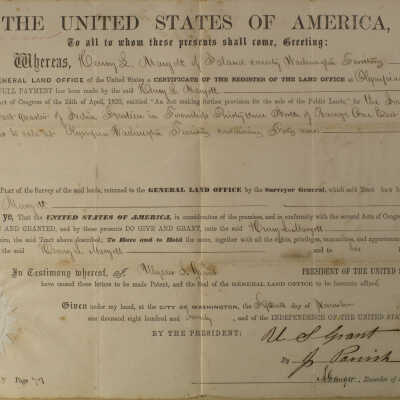 THE UNITED STATES OF AMERICA,
To all to whom these presents shall come, Greeting:
Whereas, Henry L. of Island county Washington Territory
GENERAL LAND OFFICE of the United States a CERTIFICATE OF THE REGISTER OF THE LAND OFFICE at Olympia
FULL PAYMENT has been made by the said Henry
Act of Congress of the 24th of April, 1820, entitled "An Act making further provision for the sale of the Public Lands," for the
quarter of Section twelve in Township Thirty three North of Range One East
to sale at Olympia Washington Territory containing forty acres
PLAT of the Survey of the said lands, returned to the GENERAL LAND OFFICE by the Surveyor General, which said Tract has b
ye, That the UNITED STATES OF AMERICA, in consideration of the premises, and in conformity with the several Acts of Congress
AND GRANTED, and by these presents DO GIVE AND GRANT, unto the said Henry L.
the said Tract above described; To Have and to Hold the same, together with all the rights, privileges, immunities, and appurtenances
the said Henry L. and to his
In Testimony whereof, I, Ulysses S. Grant PRESIDENT OF THE UNITED S
have caused these letters to be made Patent, and the Seal of the GENERAL LAND OFFICE to be hereunto affixed.
Given under my hand, at the CITY OF WASHINGTON, the day of
one thousand eight hundred and seventy, and of the INDEPENDENCE OF THE UNITED STATES
BY THE PRESIDENT: U. S. Grant
By Parrish
Page Recorder of